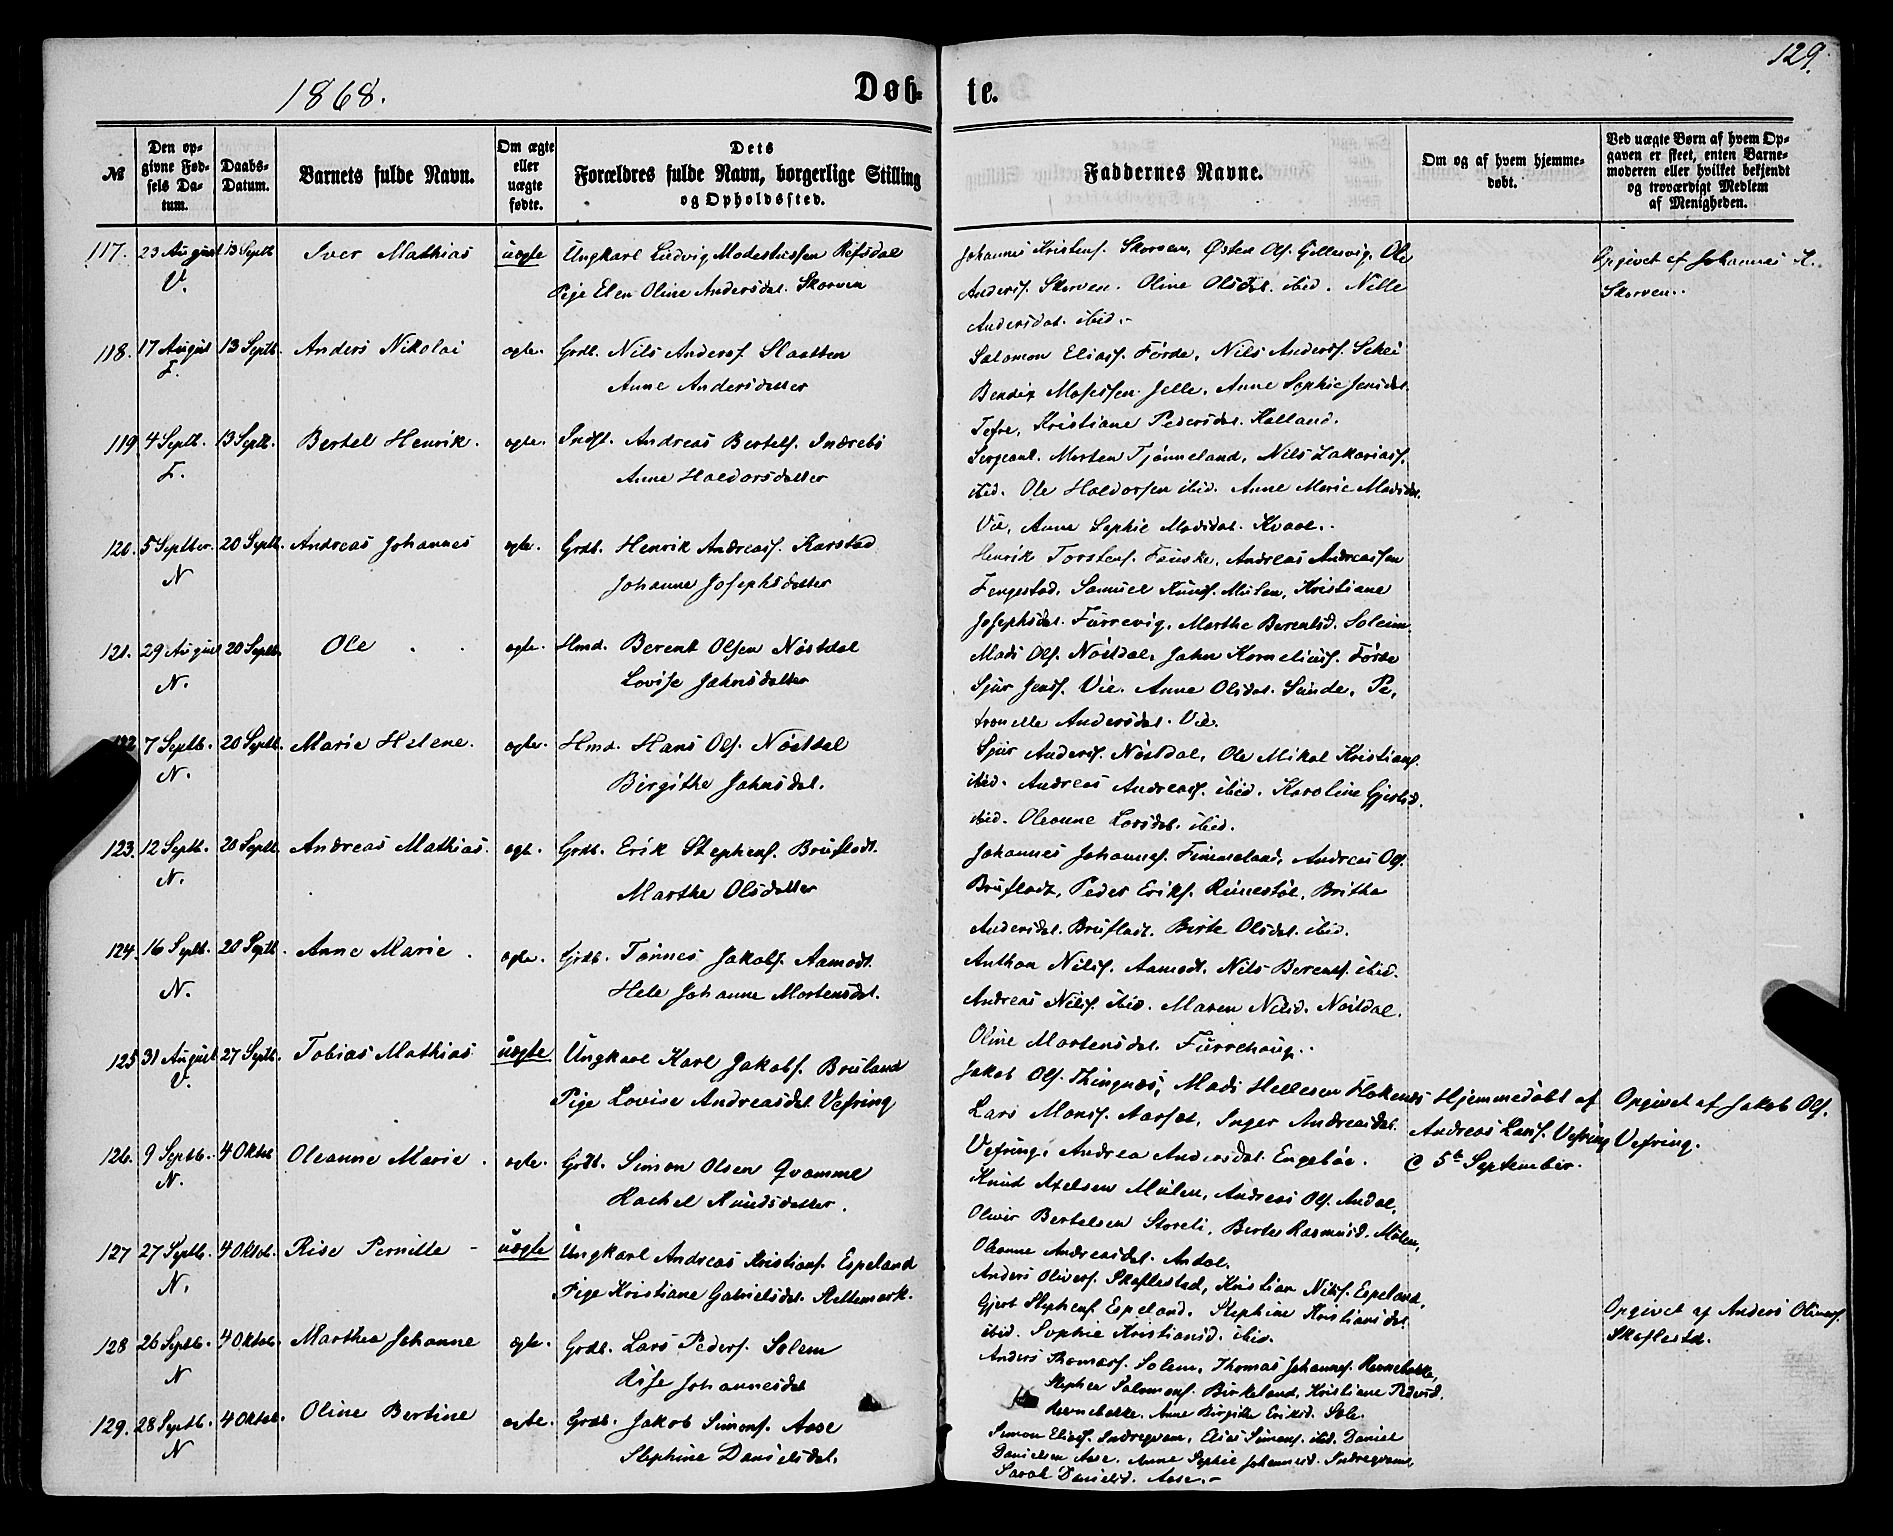 129.
1868.
Døb- te.
№
Den op-
givne Fød-
sels Da-
tum.
Daabs-
Datum.
Barnets fulde Navn.
Om ægte
eller
uægte
fødte.
Dets
Forældres fulde Navn, borgerlige Stilling
og Opholdssted.
Faddernes Navne.
Om og af hvem hjemme-
døbt.
Ved uægte Børn af hvem Op-
gaven er skeet, enten Barne-
moderen eller hvilket bekjendt
og troværdigt Medlem
af Menigheden.
117. 23 August 13 Septb Iver Mathias uægte Ungkarl Ludvig Modestussen Refsdal
V. Pige Elen Oline Andersdat. Skorven
Johannes Kristens. Skorven, Østen Ols. Gjellesvig, Ole
Anders. Skorven. Oline Olsdat. ibid. Nille
Andersdat. ibid.-
Opgivet af Johannes K.
Skorven..
118. 17 August 13 Septb. Anders Nikolai ægte. Grdb. Nils Anders. Slaatten
F. Anne Andersdatter
Salomon Elias. Førde, Nils Anders. Schei
Bendix Mosessen Jelle, Anne Sophie Jensdat.
Tefre, Kristiane Pedersdat. Halland.
119 4 Septb. 13 Septb. Bertel Henrik. ægte. Indst. Andreas Bertels. Indrebø
F. Anne Haldorsdatter
Sergeant. Morten Tjønneland, Nils Zakarias.
ibid. Ole Haldorsen ibid. Anne Marie Madsdat.
Vie, Anne Sophie Madsdat. Kvaal..
120. 5 Septber. 20 Septb. Andreas Johannes ægte. Grdb. Henrik Andreas. Karstad
N Johanne Josephsdatter
Henrik Torstens. Fauske, Andreas Andreassen
Fengestad, Samuel Knuds. Mulen, Kristiane
Josephsdat. Furrevig, Marthe Berentsd. Soleim.
121. 29 August 20 Septb. Ole ægte. Hmd. Berent Olsen Nøstdal
N. Lovise Jahnsdatter
Mads Ols. Nøstdal, Jahn Kornelius. Førde
Sjur Jens. Vie. Anne Olsdat. Sunde, Pe,
tronelle Andersdat. Vie.
122 7 Septb. 20 Septb. Marie Helene. ægte. Hmd. Hans Ols. Nøstdal
N. Birgithe Jahnsdat.
Sjur Anders. Nøstdal, Ole Mikal Kristians.
ibid. Andreas Andreas. ibid. Karoline Gjertsd.
ibid. Oleanne Larsdat. ibid.
123. 12 Septb. 20 Septb. Andreas Mathias. ægt. Grdb. Erik Stephens. Brufladt.
N. Marthe Olsdatter
Johannes Johannes. Fimmeland, Andreas Ols.
Brufladt, Peder Eriks. Rimestøl, Brithe
Andersdat. Brufladt. Birte Olsdat. ibid.
124. 16 Septb. 20 Septb. Anne Marie. ægte. Grdb. Tønnes Jakobs. Aamodt.
N. Hele Johanne Mortensdat.
Anthon Nils. Aamodt, Nils Berents. ibid.
Andreas Nils. ibid. Maren Nilsd. Nøstdal.
Oline Mortensdat. Furrehaug..
125 31 August 27 Septb. Tobias Mathias uægte Ungkarl Karl Jakobs. Bruland
V. Pige Lovise Andreasdat. Vefring
Jakob Ols. Thingnæs, Mads Hellesen Flokenes
Lars Mons. Aarsæt, Inger Andreasdat.
Vefring, Andrea Andersdat. Engebøe.
Hjemmedøbt af
Andreas Lars. Vefring
d 5te September.
Opgivet af Jakob Ols.
Vefring.
126. 9 Septb. 4 Oktob Oleanne Marie. ægte. Grdb. Simon Olsen Qvamme
N. Rachel Knudsdatter.
Knud Axelsen Mulen, Andreas Ols. Andal,
Oliver Bertelsen Storeli, Berte Rasmusd. Mulen,
Oleanne Andreasdat. Andal.
127 27 Septb. 4 Oktob. Rise Pernille - uægte Ungkarl Andreas Kristians. Espeland
N. Pige Kristiane Gabrielsdat. Slettemark.
Anders Olivers. Skaflestad, Kristian Nils. Espeland,
Gjert Stephens. Espeland. Stephine Kristiansdat.
ibid. Sophie Kristiansd. ibid.
Opgivet af Anders Olivers.
Skaflestd.
128 26 Septb. 4 Oktob. Marthea Johanne ægte. Grdb. Lars Peders. Solem
N Lise Johannesdat
Anders Thomas. Solem, Thomas Johannes. Kvnebakke,
Stephen Salomons. Birkeland, Kristiane Pedersd.
Kvnebakke. Anne Birgitte Eriksd. Sole.
129. 28 Septb. 4 Oktob. Oline Bertine ægte. Grdb. Jakob Simons. Aase
N Stephine Danielsdat.
Simon Elias. Indreqvam, Elias Simons. ibid. Daniel
Danielsen Aase. Anne Sophie Johannesd. Indreqvam,
Sarah Danielsd. Aase.-